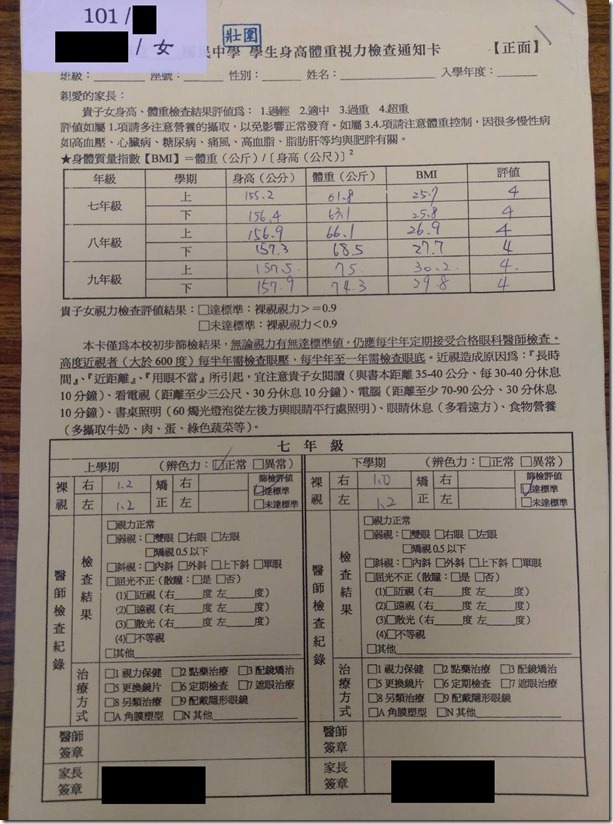 101/
/ 女
壯圍
國民中學 學生身高體重視力檢查通知卡 【正面】
班級：______ 座號：______ 性別：______ 姓名：______ 入學年度：______
親愛的家長：
貴子女身高、體重檢查結果評值為： 1.過輕 2.適中 3.過重 4.超重
評值如屬 1.項請多注意營養的攝取，以免影響正常發育。如屬 3.4.項請注意體重控制，因很多慢性病
如高血壓、心臟病、糖尿病、痛風、高血脂、脂肪肝等均與肥胖有關。
★身體質量指數【BMI】＝體重（公斤）/〔身高（公尺）〕2
年級 學期 身高（公分） 體重（公斤） BMI 評值
七年級 上 155.2 61.8 25.7 4
下 156.4 63.1 25.8 4
八年級 上 156.9 66.1 26.9 4
下 157.3 68.5 27.7 4
九年級 上 157.5 75 30.2 4
下 157.9 74.3 29.8 4
貴子女視力檢查評值結果：□達標準：裸視視力＞=0.9
□未達標準：裸視視力＜0.9
本卡僅為本校初步篩檢結果，無論視力有無達標準值，仍應每半年定期接受合格眼科醫師檢查。
高度近視者（大於 600 度）每半年需檢查眼壓，每半年至一年需檢查眼底。近視造成原因為：『長時
間』、『近距離』、『用眼不當』所引起，宜注意貴子女閱讀（與書本距離 35-40 公分、每 30-40 分休息
10 分鐘）、看電視（距離至少三公尺、30 分休息 10 分鐘）、電腦（距離至少 70-90 公分、30 分休息
10 分鐘）、書桌照明（60 燭光燈泡從左後方與眼睛平行處照明）、眼睛休息（多看遠方）、食物營養
（多攝取牛奶、肉、蛋、綠色蔬菜等）。
七 年 級
上學期 （辨色力：☑正常 □異常） 下學期 （辨色力：□正常 □異常）
裸視 右 1.2 矯正 右 篩檢評值 裸視 右 1.0 矯正 右 篩檢評值
左 1.2 左 ☑達標準 □未達標準 左 1.2 左 ☑達標準 □未達標準
醫師檢查紀錄 檢查結果 □視力正常 醫師檢查紀錄 檢查結果 □視力正常
□弱視：□雙眼 □右眼 □左眼 □弱視：□雙眼 □右眼 □左眼
□矯視 0.5 以下 □矯視 0.5 以下
□斜視：□內斜 □外斜 □上下斜 □單眼 □斜視：□內斜 □外斜 □上下斜 □單眼
□屈光不正（散瞳：□是 □否） □屈光不正（散瞳：□是 □否）
(1)□近視（右____度 左____度） (1)□近視（右____度 左____度）
(2)□遠視（右____度 左____度） (2)□遠視（右____度 左____度）
(3)□散光（右____度 左____度） (3)□散光（右____度 左____度）
(4)□不等視 (4)□不等視
□其他____ □其他____
治療方式 □1 視力保健 □2 點藥治療 □3 配鏡矯治 治療方式 □1 視力保健 □2 點藥治療 □3 配鏡矯治
□5 更換鏡片 □6 定期檢查 □7 遮眼治療 □5 更換鏡片 □6 定期檢查 □7 遮眼治療
□8 另類治療 □9 配戴隱形眼鏡 □8 另類治療 □9 配戴隱形眼鏡
□A 角膜塑型 □N 其他____ □A 角膜塑型 □N 其他____
醫師簽章 醫師簽章
家長簽章 家長簽章